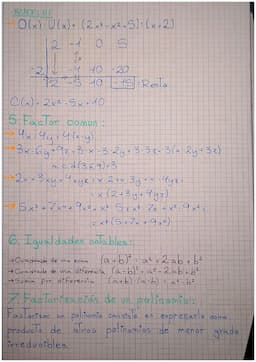 RUFFINI
→ D(x):U(x) = (2x³-x²+5):(x+2)
2 -1 0 5
-2 -4 10 -20
2 -5 10 -15 : Resto
C(x) = 2x² - 5x + 10
5. Factor común:
→ 4x - 4y = 4(x-y)
m.c.d(3,6,9) = 3
= x(2+3y+4yz)
= x²(5+7x+9x²)
6. Igualdades notables:
→ Cuadrado de una suma (a+b)² = a²+2ab+b²
→ Cuadrado de una diferencia (a-b)² = a²-2ab+b²
→ Suma por diferencia (a+b)·(a-b) = a²-b²
7. Factorización de un polinomio:
Factorizar un polinomio consiste en expresarlo como
producto de otros polinomios de menor grado
irreducibles.